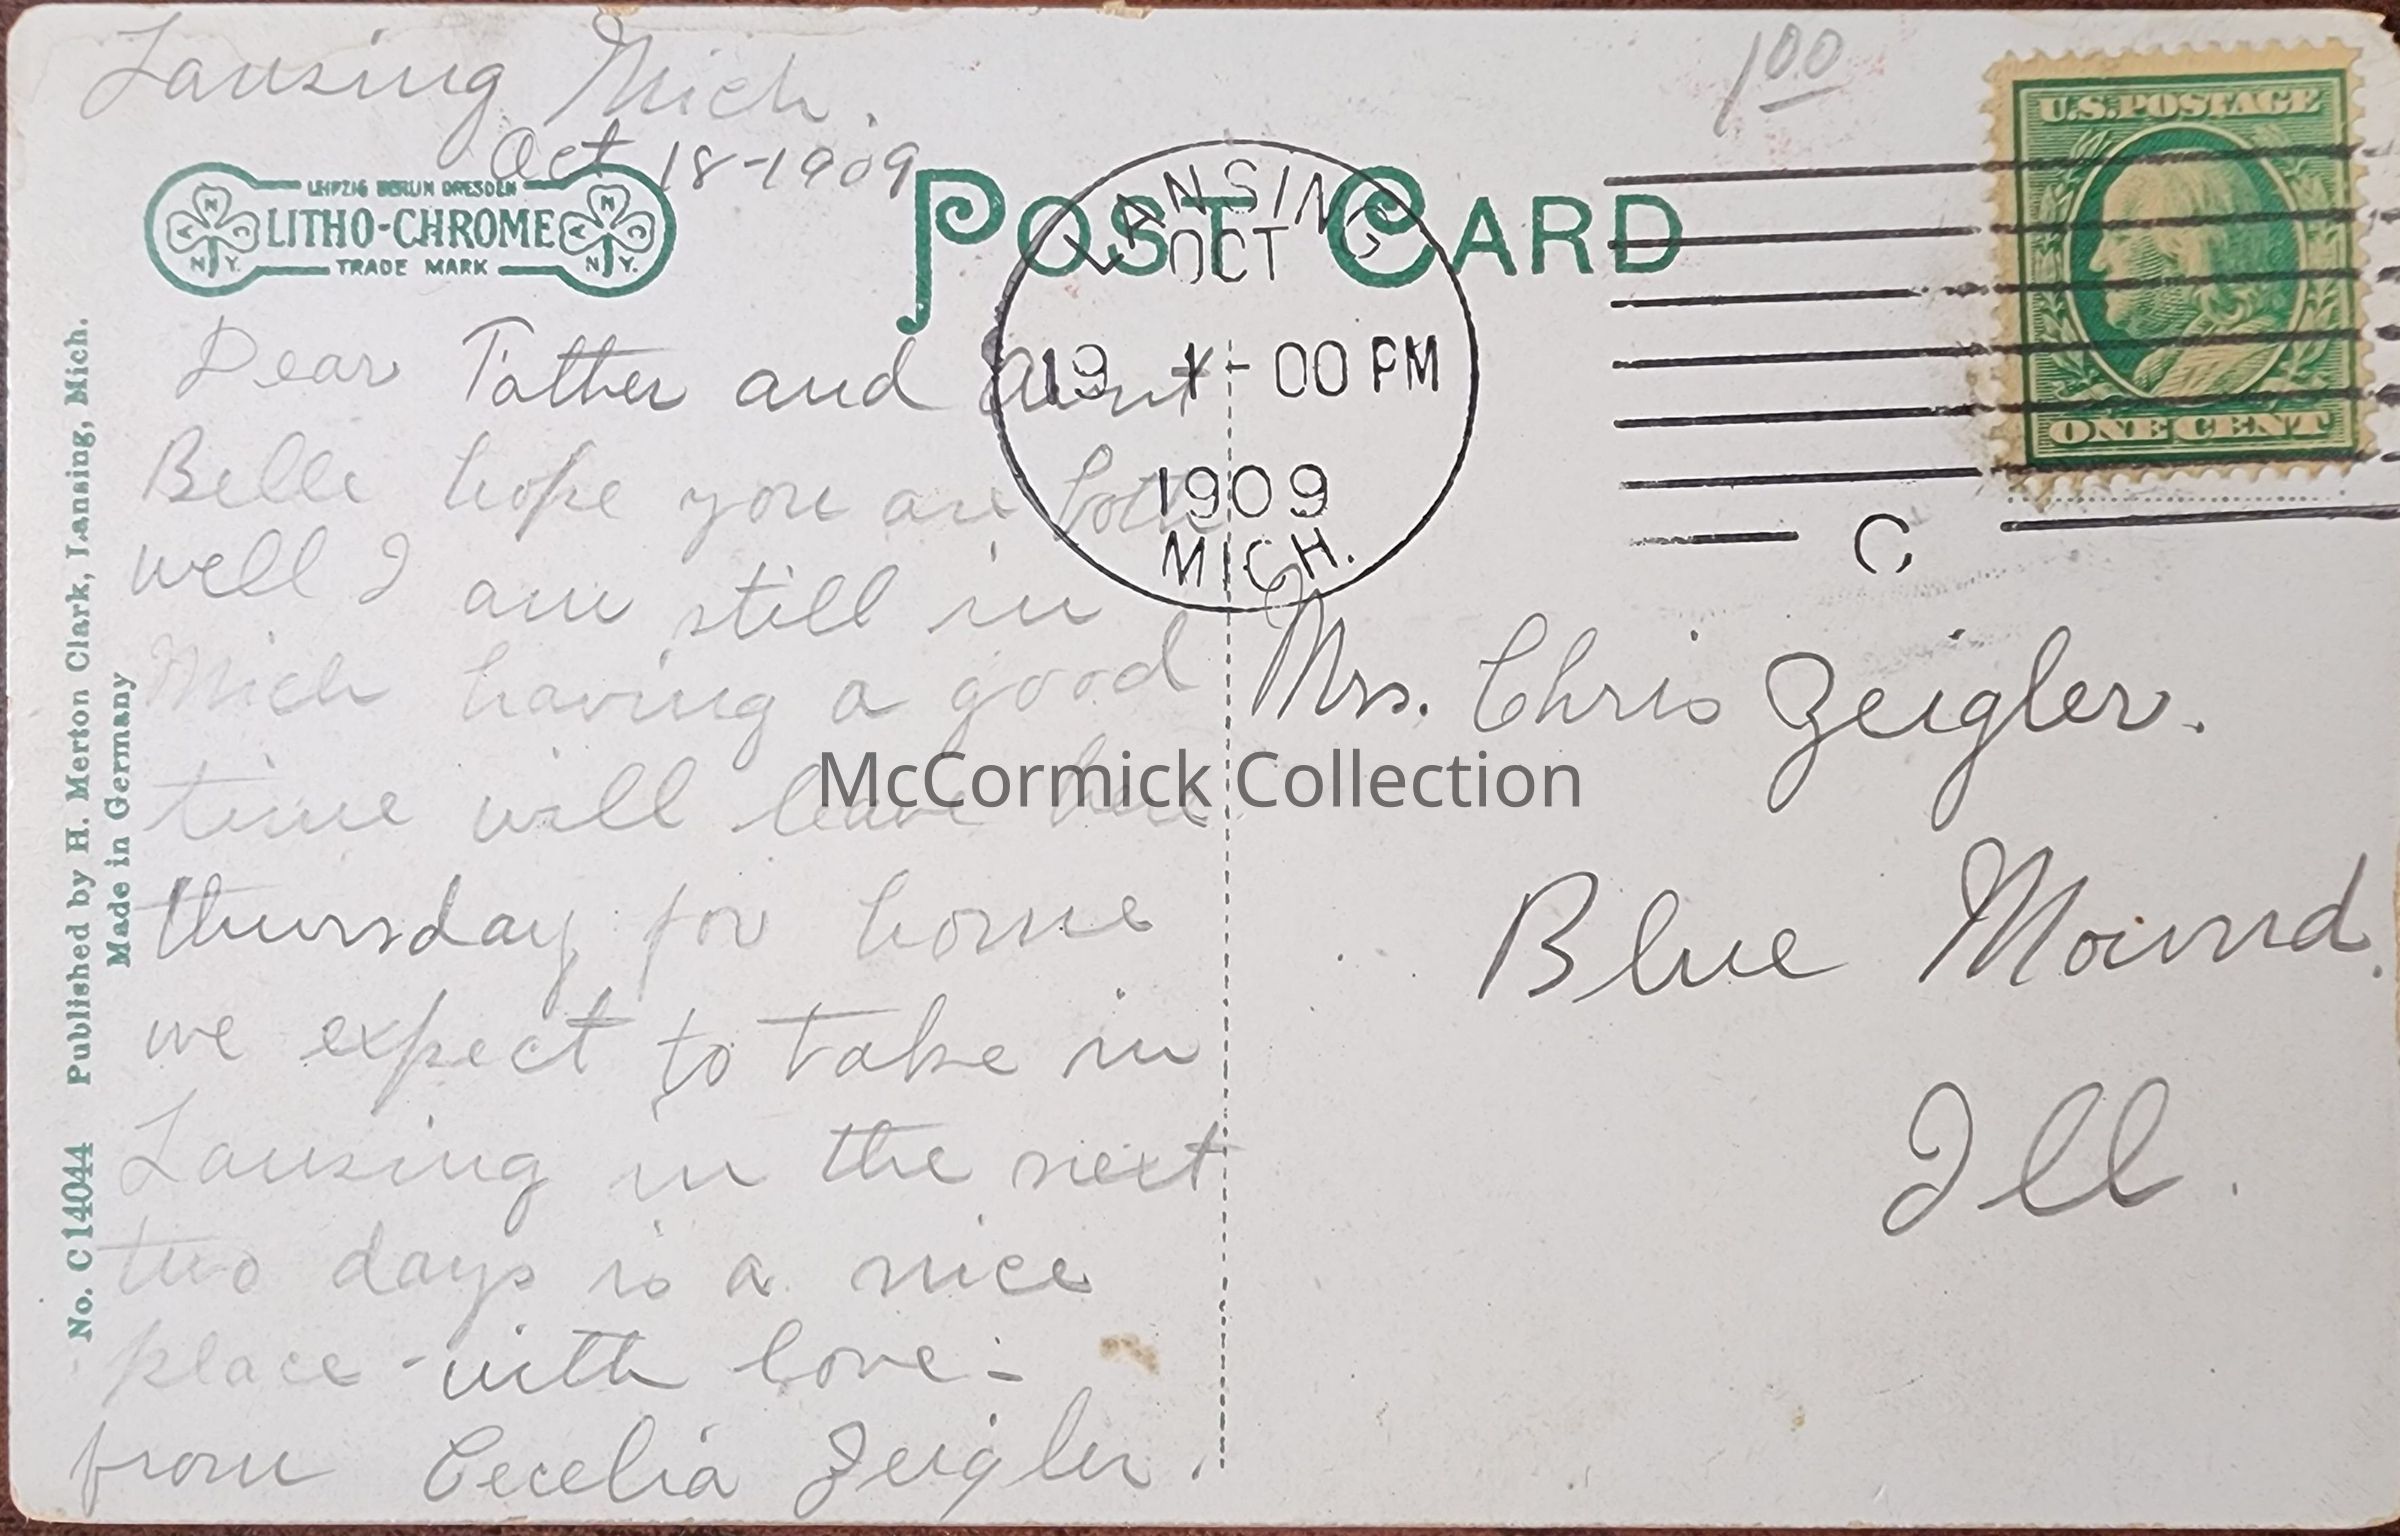 Lansing Mich.
Oct 18-1909
100
U.S. POSTAGE
ONE CENT
LEIPZIG BERLIN DRESDEN
LITHO-CHROME
TRADE MARK
N A C N.Y.
N A C N.Y.
POST CARD
LANSING
OCT
19 1-00 PM
1909
MICH.
C
Dear Father and Aunt
Belle hope you are both
well I am still in
Mich having a good
time will leave here
thursday for home
we expect to take in
Lansing in the next
two days is a nice
place - with love -
from Cecelia Zeigler.
Mrs. Chris Zeigler.
Blue Mound.
Ill.
No. C 14044 Published by H. Merton Clark, Lansing, Mich.
Made in Germany
McCormick Collection